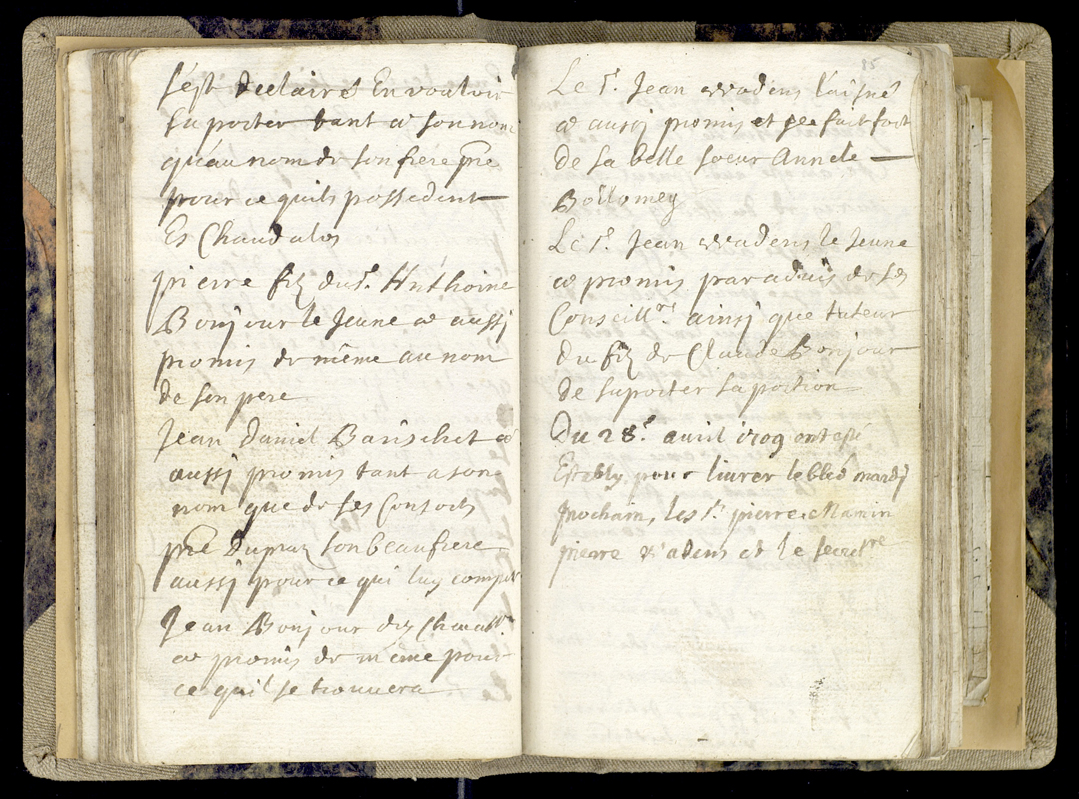 s'est declairé En vouloir
suporter tant a son nom
qu'au nom de son frere pre
pour ce quils possedent
Es Chaudalos
pierre fiz du sr. Anthoine
Bonjour le Jeune a aussj
promis de même au nom
de son pere
Jean Daniel Banschet a
aussj promis tant a son
nom que de ses Consorts
pre Dupraz son beaufrere
aussj pour ce qui luy compet
Jean Bonjour dix
a promis de même pour
ce quil se trouvera
Le sr. Jean vvadens l'aîsné
a aussj promis et se fait fort
de sa belle soeur Annele
Bollomey
Le sr. Jean vvadens le Jeune
a promis par advis de ses
Conseillrs ainsj que tuteur
du fiz de Claude Bonjour
de suporter sa portion
Du 28e. avril 1709 ont esté
Establÿ pour livrer le bled mardj
prochain, les srs pierre Mamin
pierre vvadens et le secretre